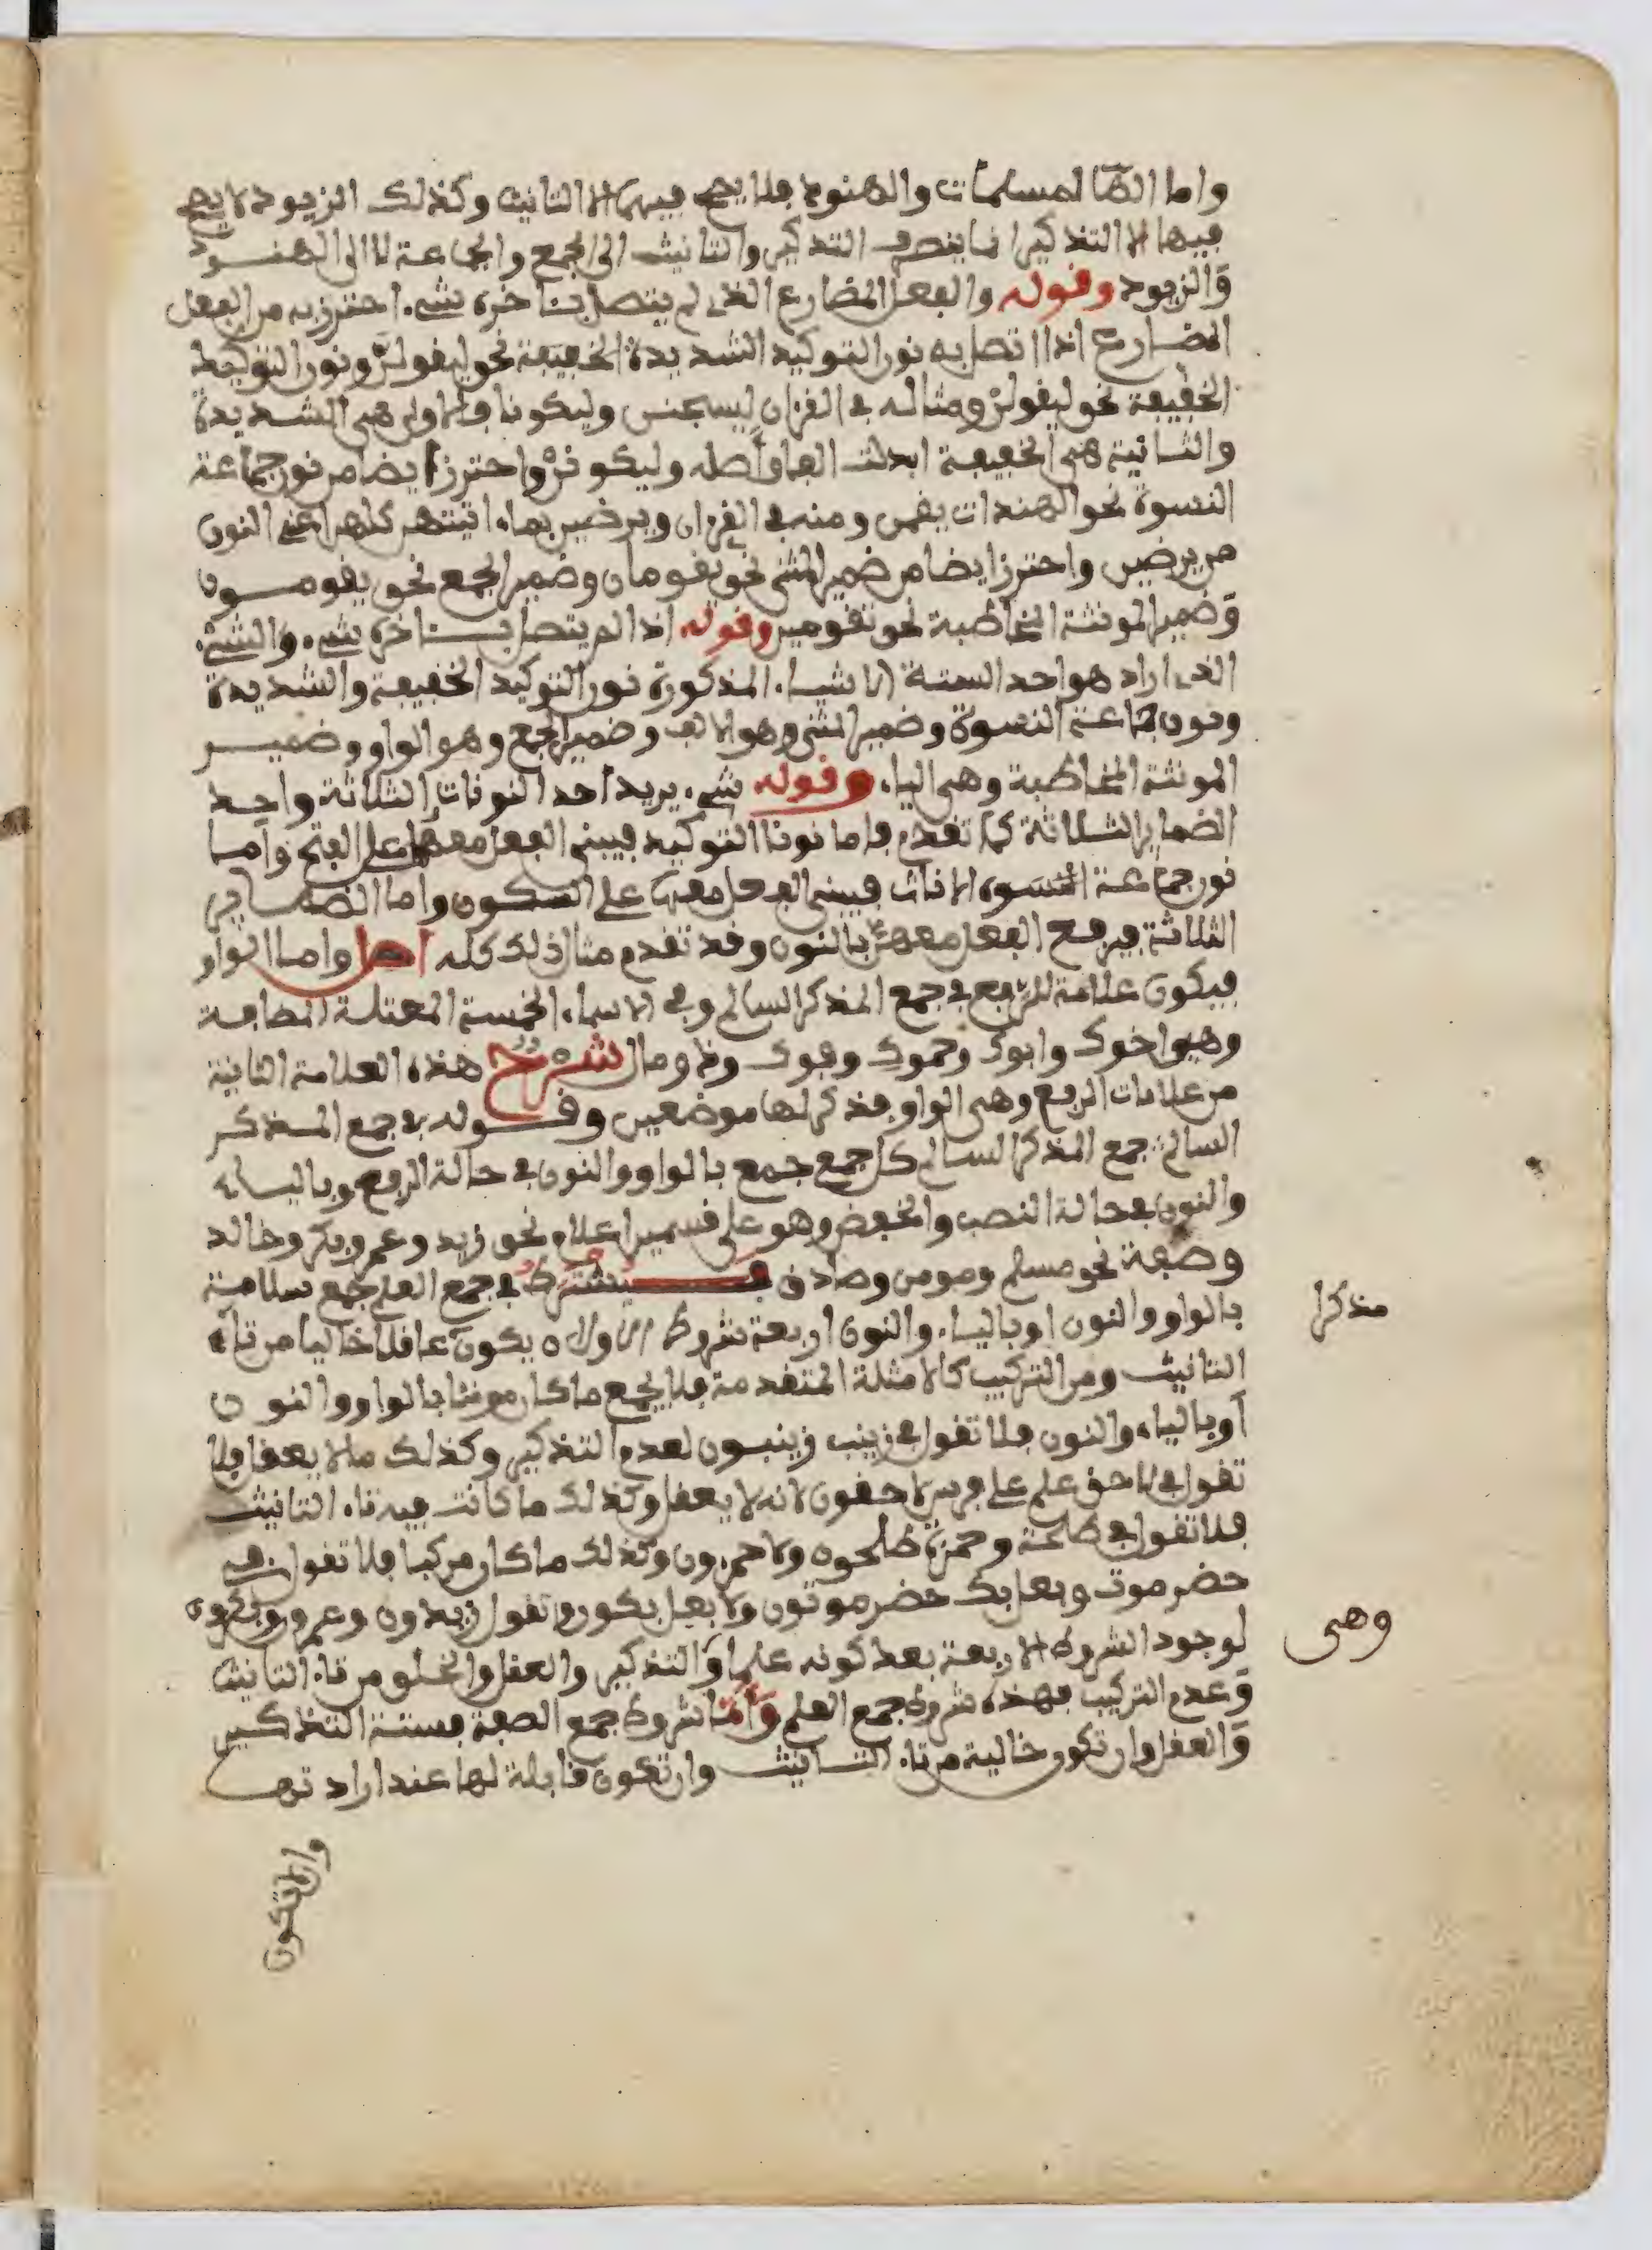 واما الها المسلمات والهنود فلا يصح فيهما الا التانيث وكذلك الزيود لا يصح
فيها الا التذكير انما ينصرف التذكير والتانيث الى الجمع والجماعة لا الى الهنود
والزيود وقوله والفعل المضارع الذي لم يتصل بئاخره شيء احترز به من الفعل
المضارع اذا اتصل به نون التوكيد الشديدة الخفيفة نحو ليقولن ونون التوكيد
الخفيفة نحو ليقولن ومثاله في القرءان ليسجنن وليكونا فالاولى هي الشديدة
والثانية هي الخفيفة ابدلت الفا واصله وليكونن واحترز ايضا من نون جماعة
النسوة نحو الهندات يقمن ومنه في القرءان ويرضين بما ءاتيتهن كلهن اعني النون
من يرضين واحترز ايضا من ضمير المثنى نحو يقومان وضمير الجمع نحو يقومون
وضمير المونثة المخاطبة نحو تقومين وقوله اذا لم يتصل بئاخره شيء والشيء
الذي اراد هو احد الستة الاشياء المذكورة نون التوكيد الخفيفة والشديدة
ونون جماعة النسوة وضمير المثنى وهو الالف وضمير الجمع وهو الواو وضمير
المونثة المخاطبة وهي الياء وقوله شيء يريد احد النونات الثلاثة واحد
الضماير الثلاثة كما تقدم فاما نونا التوكيد فيبنى الفعل معهما على الفتح واما
نون جماعة النسوة الاناث فيبنى الفعل معها على السكون واما الضماير
الثلاثة فيرفع الفعل معهن بالنون وقد تقدم مثال ذلك كله اصل واما الواو
فيكون علامة للرفع في جمع المذكر السالم وفي الاسماء الخمسة المعتلة المضافة
وهي اخوك وابوك وحموك وفوك وذو مال شرح هذه العلامة الثانية
من علامات الرفع وهي الواو فذكر لها موضعين وقوله في جمع المذكر
السالم جمع المذكر السالم كل جمع جمع بالواو والنون في حالة الرفع وبالياء
والنون في حالة النصب والخفض وهو على قسمين اعلام نحو زيد وعمرو وبكر وخالد
وصفة نحو مسلم ومومن وصادق فيشترط في جمع العلم جمع سلامة
بالواو والنون او بالياء والنون اربعة شروط الاول ان يكون عاقلا خاليا من تاء
مذكرا
التانيث ومن التركيب كالامثلة المتقدمة فلا يجمع ما كان مونثا بالواو والنون
او بالياء والنون فلا تقول في زينب زينبون لعدم التذكير وكذلك ما لا يعقل فلا
تقول في لاحق علم على فرس لاحقون لانه لا يعقل وكذلك ما كانت فيه تاء التانيث
فلا تقول في طلحة وحمزة طلحون ولا حمزون وكذلك ما كان مركبا فلا تقول في
حضر موت وبعل بك حضر موتون ولا بعل بكون وتقول زيدون وعمرون وبكرون
لوجود الشروط الاربعة بعد كونه علما والتذكير والعقل والخلو من تاء التانيث
وهي
وعدم التركيب فهذه شروط جمع العلم واما شروط جمع الصفة فستة التذكير
والعقل وان تكون خالية من تاء التانيث وان تكون قابلة لها عند ارادتها
وان لا تكون